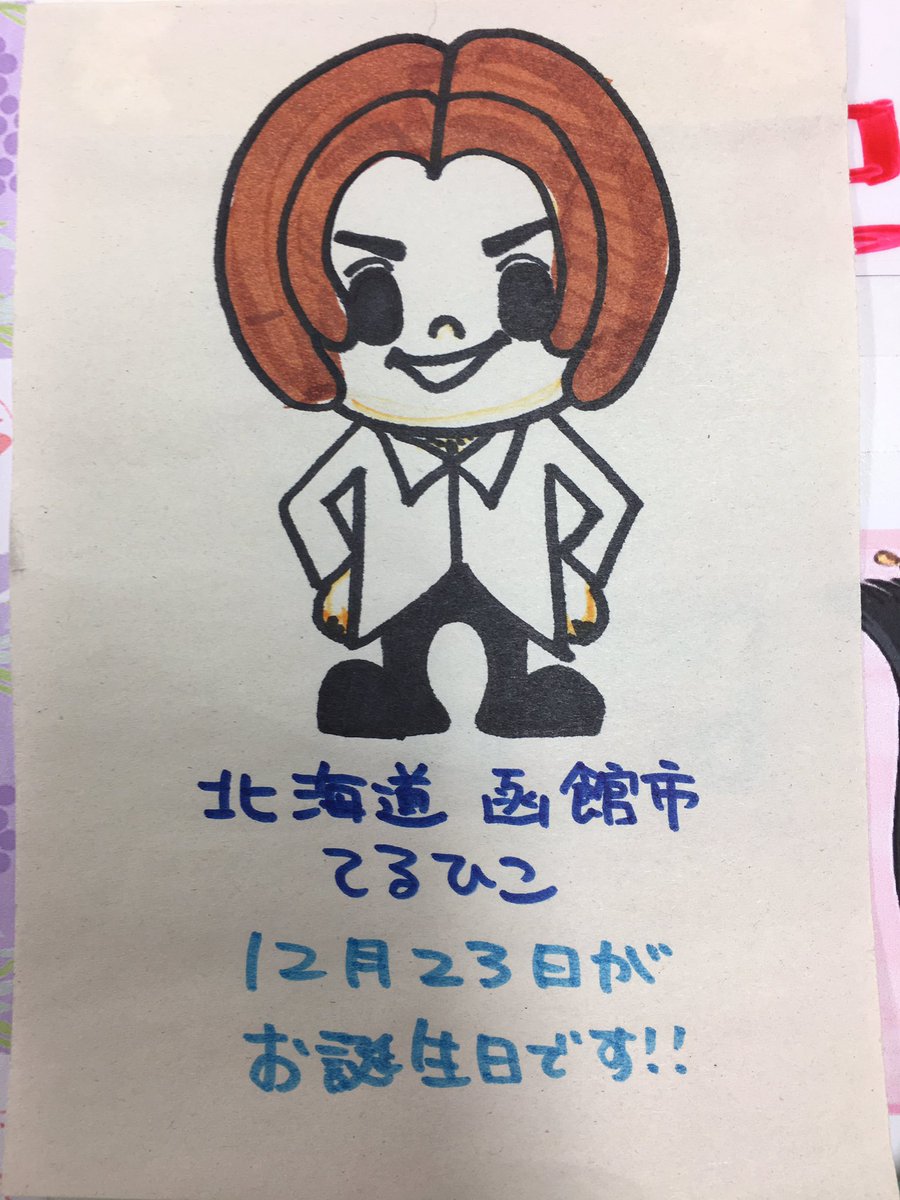 北海道 函館市
てるひこ
12月23日が
お誕生日です!!